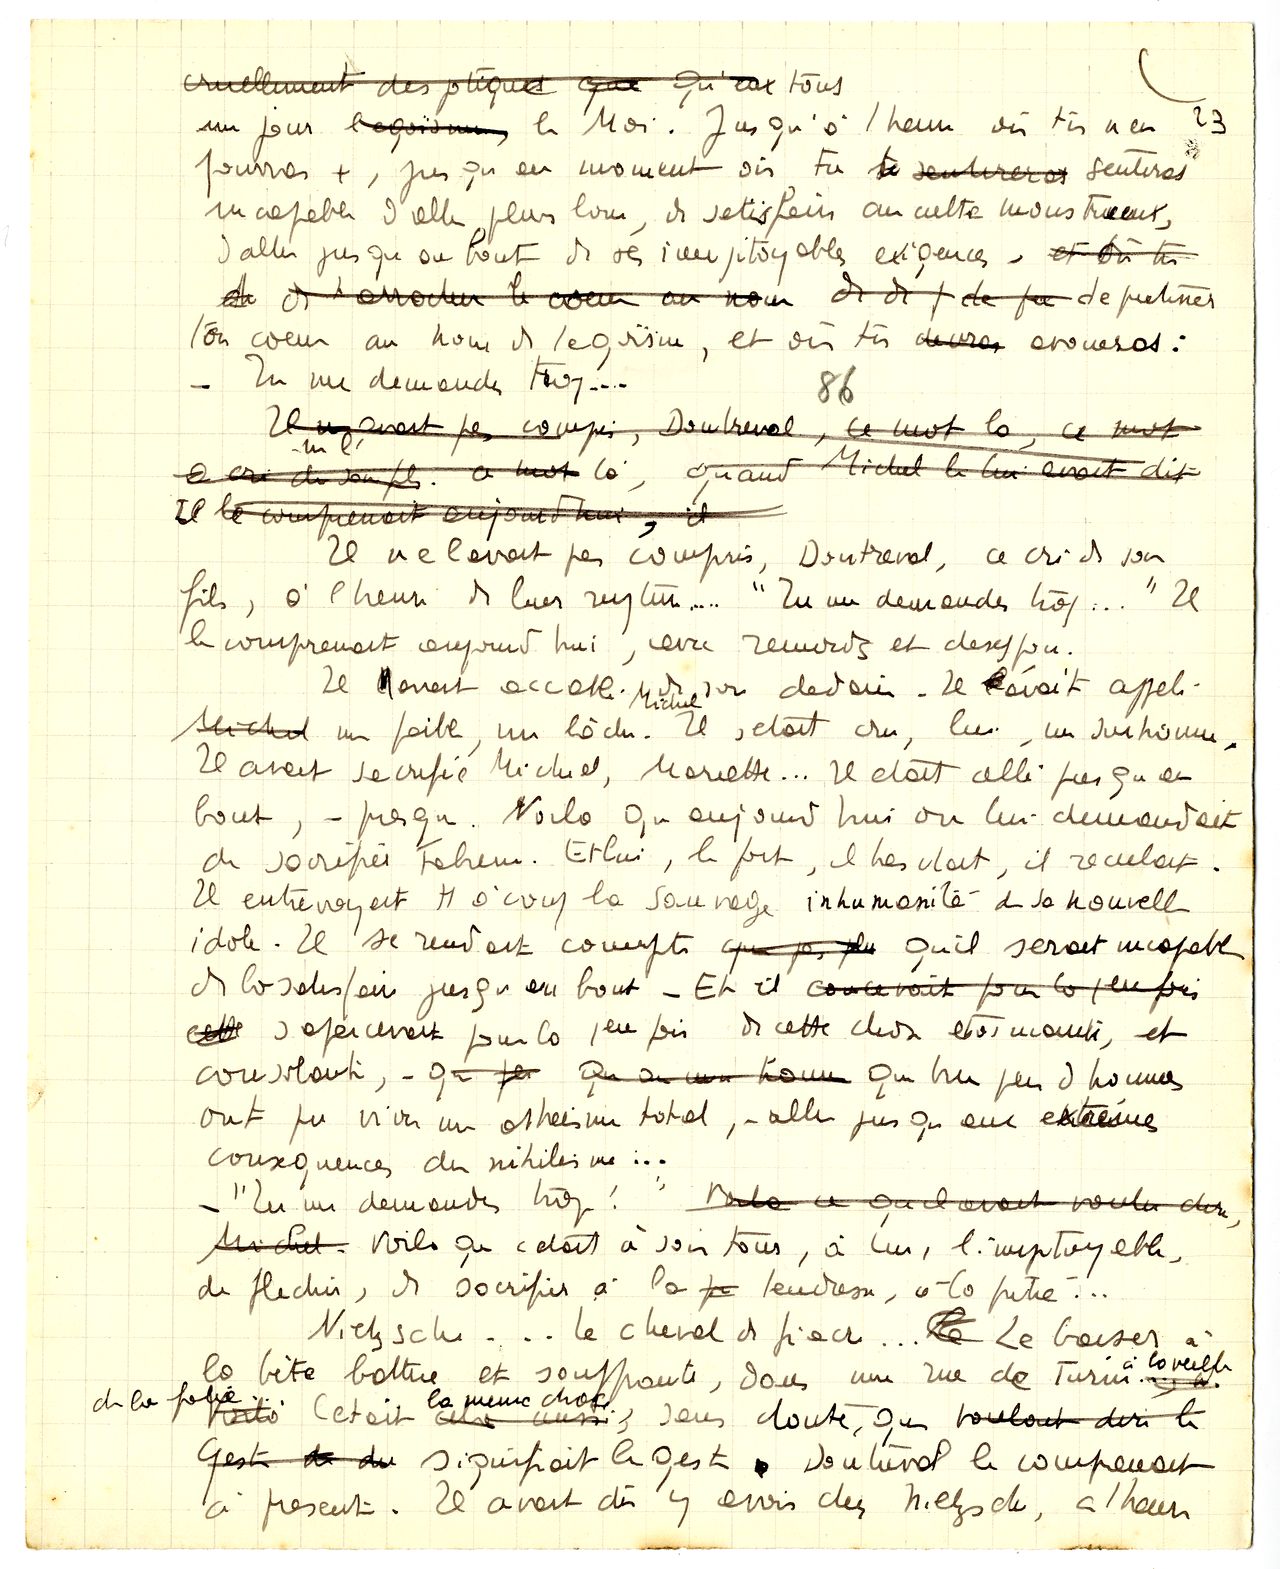 cruellement despotiques que qu'eux tous
23
un jour l'egoïsme, le Moi. Jusqu'à l'heure où tu n'en
pourras +, jusqu'au moment où tu te sentireras sentiras
incapable d'aller plus loin, de satisfaire au culte monstrueux,
d'aller jusqu'au bout de ses impitoyables exigences, et où tu
de d'arracher le coeur au nom de de de pie de pietiner
ton coeur au nom de l'egoïsme, et où tu devras avoueras :
– Tu me demandes trop....
86
Il n'avait pas compris, Doutreval, ce mot la, ce mot
ce cri de son fils. ce mot là, quand Michel le lui avait dit
Il le comprenait aujourd'hui, il
Il ne l'avait pas compris, Doutreval, ce cri de son
fils, à l'heure de leur rupture.... "Tu me demandes trop..." Il
le comprenait aujourd'hui, avec remords et desespoir.
Il l'avait accablé de son dedain. Il avait appelé
Michel
Michel un faible, un lâche. Il s'etait cru, lui, un surhomme.
Il avait sacrifié Michel, Mariette... Il etait allé jusqu'au
bout, – presque. Voila qu'aujourd'hui on lui demandait
de sacrifier Fabienne. Et lui, le fort, il hesitait, il reculait.
Il entrevoyait tt à coup la sauvage inhumanité de sa nouvelle
idole. Il se rendait compte que pas plu qu'il serait incapable
de la satisfaire jusqu'au bout – Et il concevait pour la 1ere fois
cette s'apercevait pour la 1ere fois de cette chose etonnante, et
consolante, – que peu qu'aucun homme que bien peu d'hommes
ont pu vivre un atheisme total, – aller jusqu'aux extrêmes
consequences du nihilisme...
– "Tu me demandes trop ! " Voila ce qu'il avait voulu dire,
Michel. Voila que c'etait à son tour, à lui, l'impitoyable,
de flechir, de sacrifier à la pi tendresse, à la pitié...
Nietzsche . . . le cheval de fiacre... Le Le baiser à
la bête battue et souffrante, dans une rue de Turin à la veille
de la folie... Voilà C'etait cela aussi la meme chose, sans doute, que voulait dire le
geste de du signifiait le geste. Doutreval le comprenait
à present. Il avait dû y avoir chez Nietzsche, à l'heure